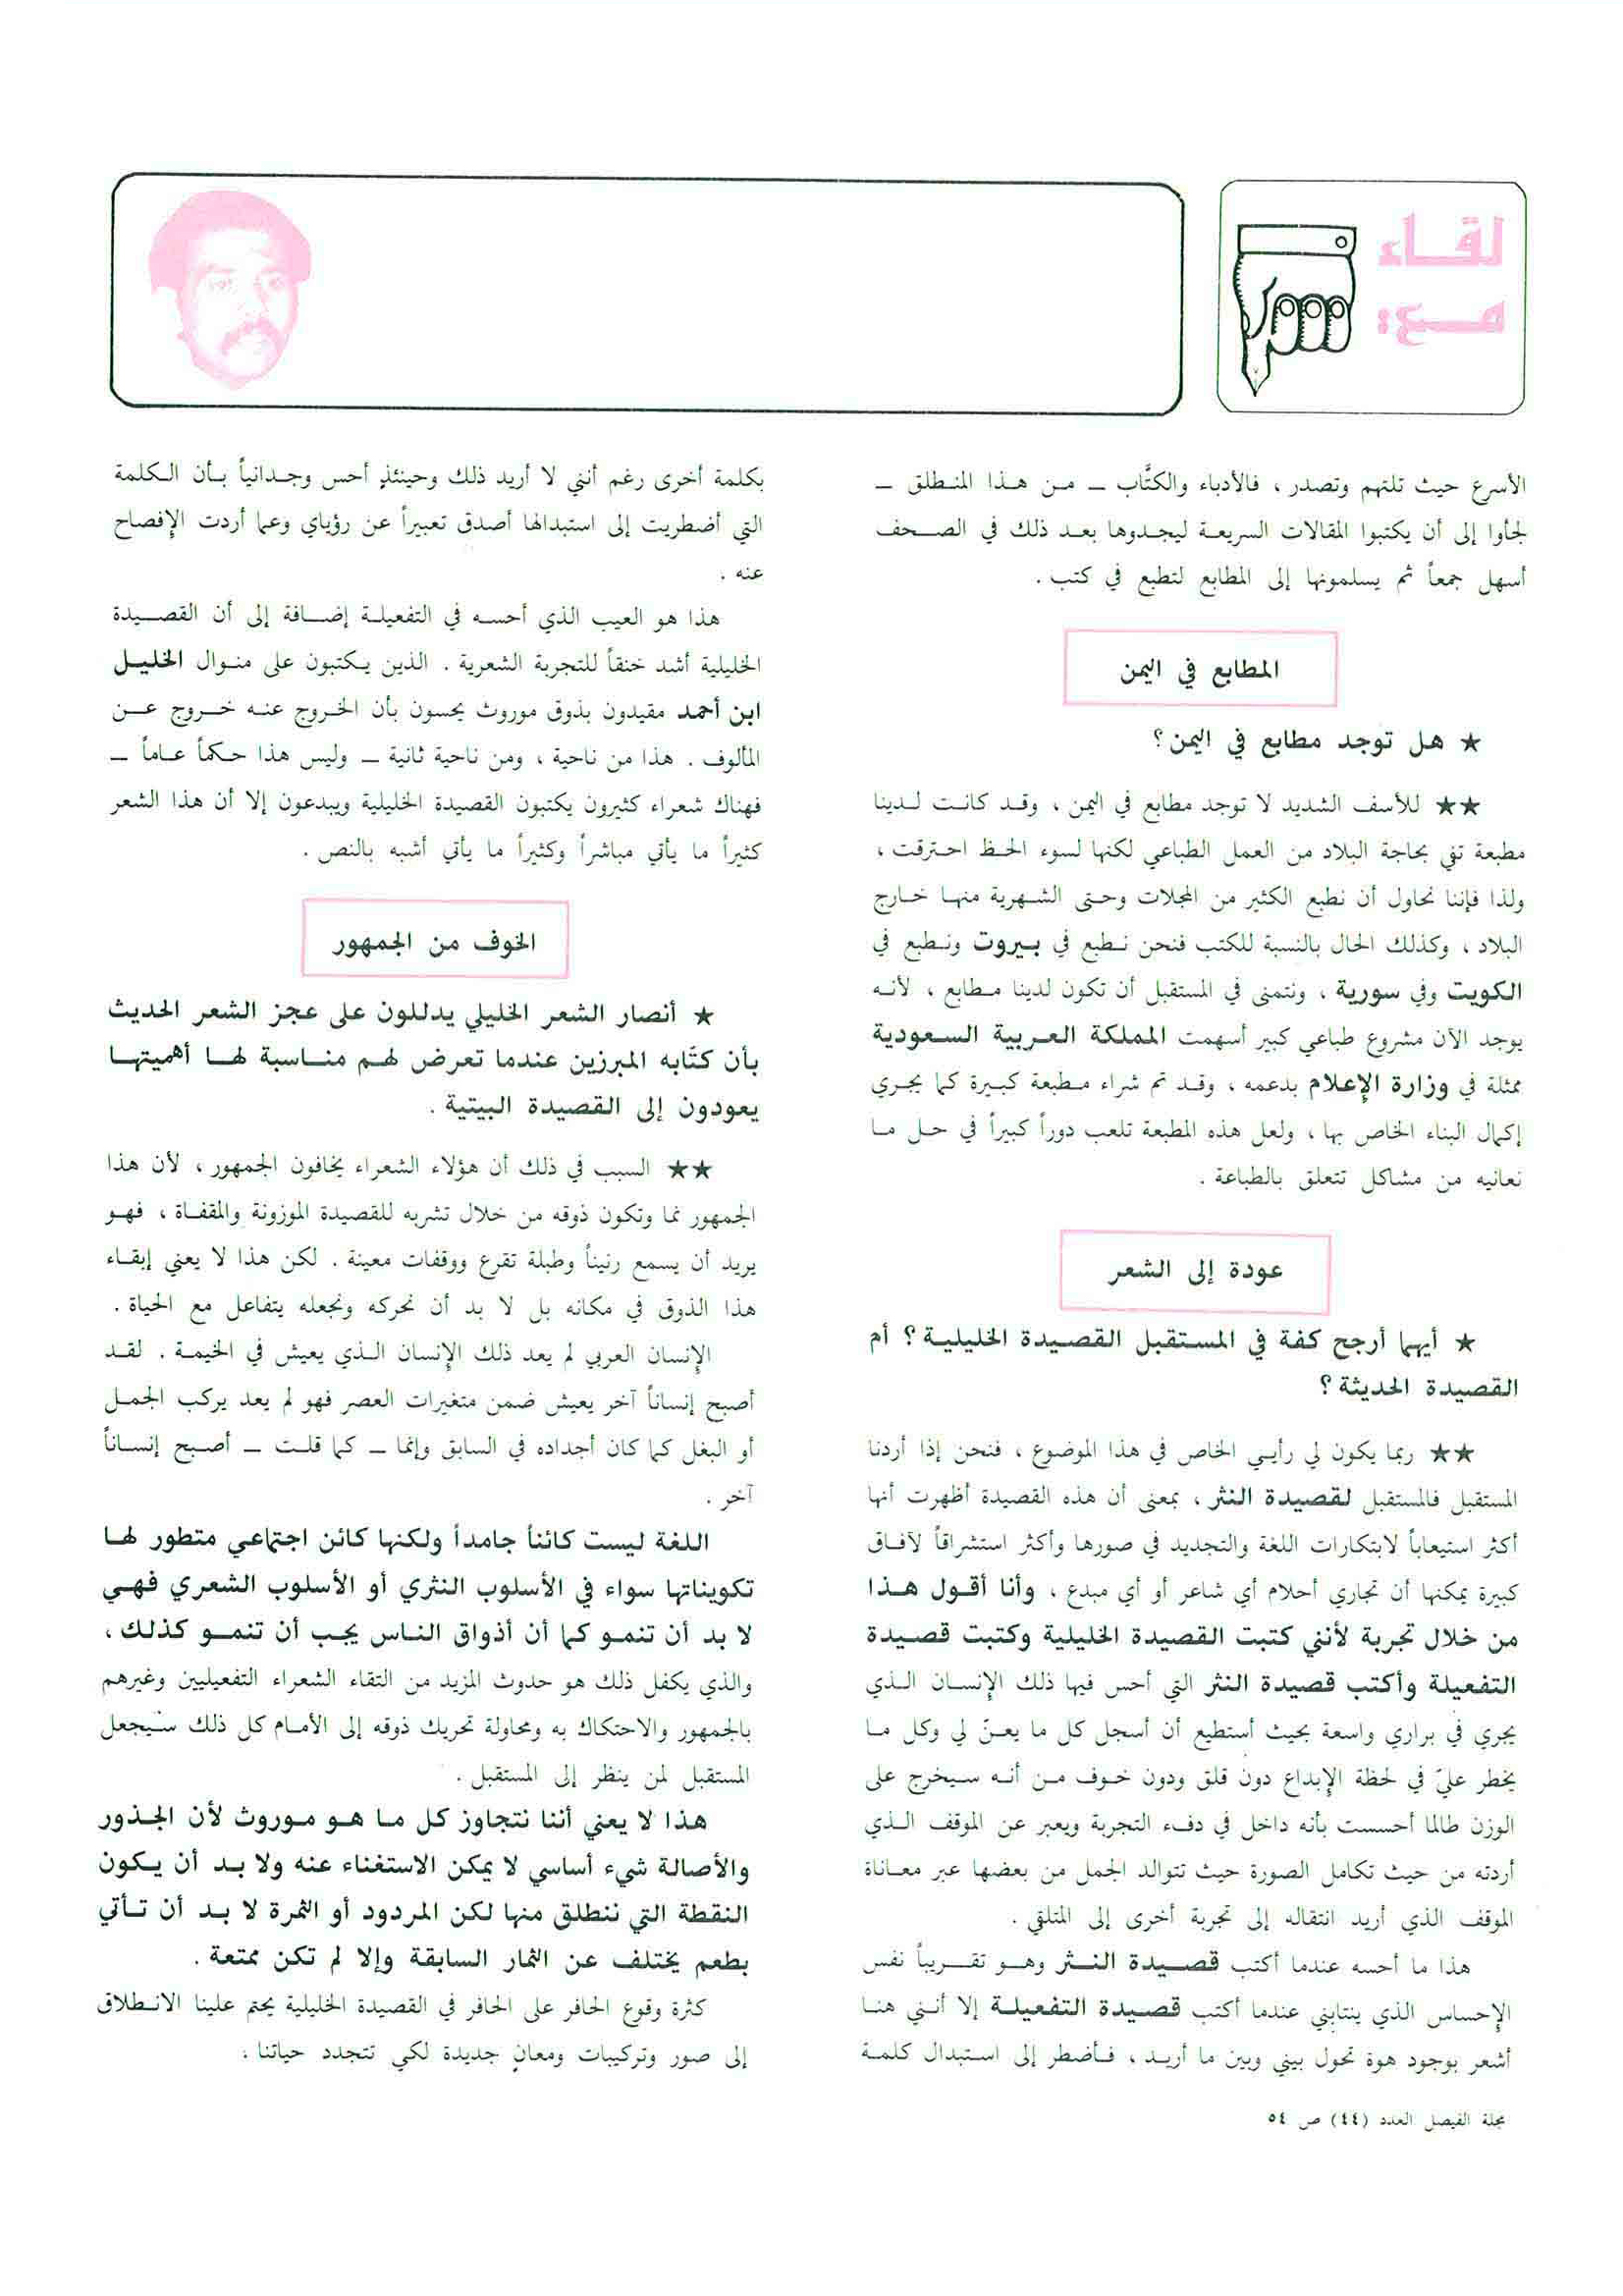 لقاء
مع:
الأسرع حيث تلتهم وتصدر ، فالأدباء والكتَّاب ــ من هذا المنطلق ــ
لجأوا إلى أن يكتبوا المقالات السريعة ليجدوها بعد ذلك في الصحف
أسهل جمعاً ثم يسلمونها إلى المطابع لتطبع في كتب .
المطابع في اليمن
★ هل توجد مطابع في اليمن ؟
★★ للأسف الشديد لا توجد مطابع في اليمن ، وقد كانت لدينا
مطبعة تفي بحاجة البلاد من العمل الطباعي لكنها لسوء الحظ احترقت ،
ولذا فإننا نحاول أن نطبع الكثير من المجلات وحتى الشهرية منها خارج
البلاد ، وكذلك الحال بالنسبة للكتب فنحن نطبع في بيروت ونطبع في
الكويت وفي سورية ، ونتمنى في المستقبل أن تكون لدينا مطابع ، لأنه
يوجد الآن مشروع طباعي كبير أسهمت المملكة العربية السعودية
ممثلة في وزارة الإعلام بدعمه ، وقد تم شراء مطبعة كبيرة كما يجري
إكمال البناء الخاص بها ، ولعل هذه المطبعة تلعب دوراً كبيراً في حل ما
نعانيه من مشاكل تتعلق بالطباعة .
عودة إلى الشعر
★ أيهما أرجح كفة في المستقبل القصيدة الخليلية ؟ أم
القصيدة الحديثة ؟
★★ ربما يكون لي رأيي الخاص في هذا الموضوع ، فنحن إذا أردنا
المستقبل فالمستقبل لقصيدة النثر ، بمعنى أن هذه القصيدة أظهرت أنها
أكثر استيعاباً لابتكارات اللغة والتجديد في صورها وأكثر استشراقاً لآفاق
كبيرة يمكنها أن تجاري أحلام أي شاعر أو أي مبدع ، وأنا أقول هذا
من خلال تجربة لأنني كتبت القصيدة الخليلية وكتبت قصيدة
التفعيلة وأكتب قصيدة النثر التي أحس فيها ذلك الإنسان الذي
يجري في براري واسعة بحيث أستطيع أن أسجل كل ما يعنّ لي وكل ما
يخطر عليّ في لحظة الإبداع دون قلق ودون خوف من أنه سيخرج على
الوزن طالما أحسست بأنه داخل في دفء التجربة ويعبر عن الموقف الذي
أردته من حيث تكامل الصورة حيث تتوالد الجمل من بعضها عبر معاناة
الموقف الذي أريد انتقاله إلى تجربة أخرى إلى المتلقي .
هذا ما أحسه عندما أكتب قصيدة النثر وهو تقريباً نفس
الإحساس الذي ينتابني عندما أكتب قصيدة التفعيلة إلا أنني هنا
أشعر بوجود هوة تحول بيني وبين ما أريد ، فأضطر إلى استبدال كلمة
بكلمة أخرى رغم أنني لا أريد ذلك وحينئذٍ أحس وجدانياً بأن الكلمة
التي أضطريت إلى استبدالها أصدق تعبيراً عن رؤياي وعما أردت الإفصاح
عنه .
هذا هو العيب الذي أحسه في التفعيلة إضافة إلى أن القصيدة
الخليلية أشد خنقاً للتجربة الشعرية . الذين يكتبون على منوال الخليل
ابن أحمد مقيدون بذوق موروث يحسون بأن الخروج عنه خروج عن
المألوف . هذا من ناحية ، ومن ناحية ثانية ــ وليس هذا حكماً عاماً ــ
فهناك شعراء كثيرون يكتبون القصيدة الخليلية ويبدعون إلا أن هذا الشعر
كثيراً ما يأتي مباشراً وكثيراً ما يأتي أشبه بالنص .
الخوف من الجمهور
★ أنصار الشعر الخليلي يدللون على عجز الشعر الحديث
بأن كتّابه المبرزين عندما تعرض لهم مناسبة لها أهميتها
يعودون إلى القصيدة البيتية .
★★ السبب في ذلك أن هؤلاء الشعراء يخافون الجمهور ، لأن هذا
الجمهور نما وتكون ذوقه من خلال تشربه للقصيدة الموزونة والمقفاة ، فهو
يريد أن يسمع رنيناً وطبلة تقرع ووقفات معينة . لكن هذا لا يعني إبقاء
هذا الذوق في مكانه بل لا بد أن نحركه ونجعله يتفاعل مع الحياة .
الإنسان العربي لم يعد ذلك الإنسان الذي يعيش في الخيمة . لقد
أصبح إنساناً آخر يعيش ضمن متغيرات العصر فهو لم يعد يركب الجمل
أو البغل كما كان أجداده في السابق وإنما ــ كما قلت ــ أصبح إنساناً
آخر .
اللغة ليست كائناً جامداً ولكنها كائن اجتماعي متطور لها
تكويناتها سواء في الأسلوب النثري أو الأسلوب الشعري فهي
لا بد أن تنمو كما أن أذواق الناس يجب أن تنمو كذلك ،
والذي يكفل ذلك هو حدوث المزيد من التقاء الشعراء التفعيليين وغيرهم
بالجمهور والاحتكاك به ومحاولة تحريك ذوقه إلى الأمام كل ذلك سيجعل
المستقبل لمن ينظر إلى المستقبل .
هذا لا يعني أننا نتجاوز كل ما هو موروث لأن الجذور
والأصالة شيء أساسي لا يمكن الاستغناء عنه ولا بد أن يكون
النقطة التي ننطلق منها لكن المردود أو الثمرة لا بد أن تأتي
بطعم يختلف عن الثمار السابقة وإلا لم تكن ممتعة .
كثرة وقوع الحافر على الحافر في القصيدة الخليلية يحتم علينا الانطلاق
إلى صور وتركيبات ومعانٍ جديدة لكي تتجدد حياتنا .
مجلة الفيصل العدد (٤٤) ص ٥٤